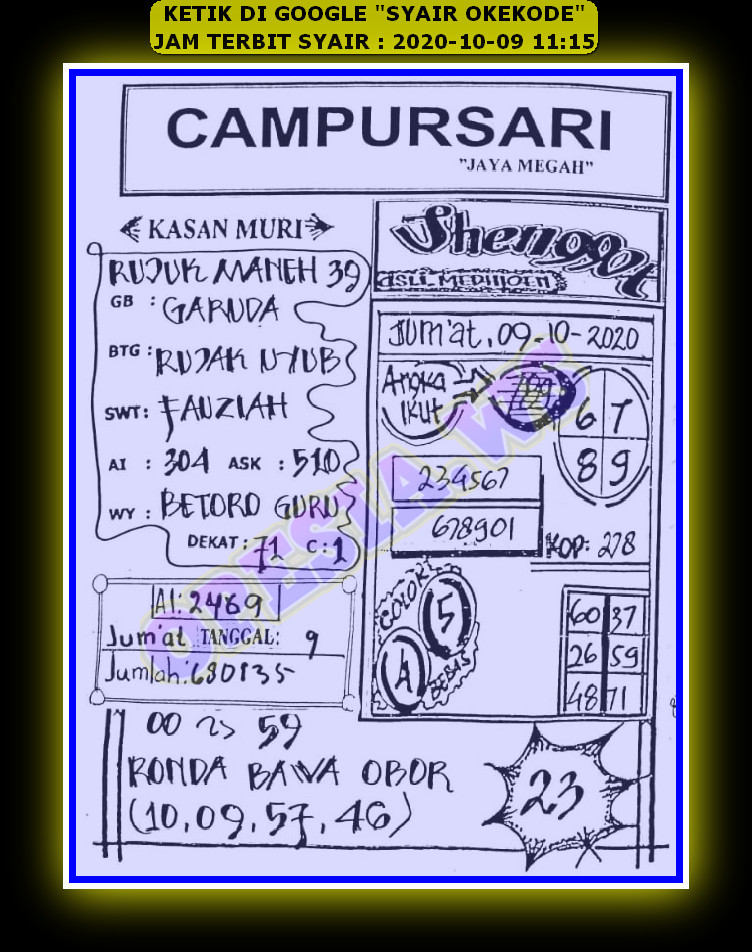 KETIK DI GOOGLE "SYAIR OKEKODE"
JAM TERBIT SYAIR : 2020-10-09 11:15
CAMPURSARI
"JAYA MEGAH"
KASAN MURI
RUJUK MANEH 39
GB : GARUDA
BTG : RUJAK UYUB
SWT: FAUZIAH
AI : 304 ASK : 510
WY : BETORO GURU
DEKAT : 71 C : 1
AI: 2469
Jum'at TANGGAL: 9
Jumlah: 680135
Shenggot
ASLI MEDHIOEN
Jum'at, 09-10-2020
Angka
Ikut
6 7
8 9
234567
678901
KOP: 278
COLOK
5
A
BEBAS
60 37
26 59
48 71
00 59
RONDA BAWA OBOR
(10, 09, 57, 46)
23
OPESIA.WS